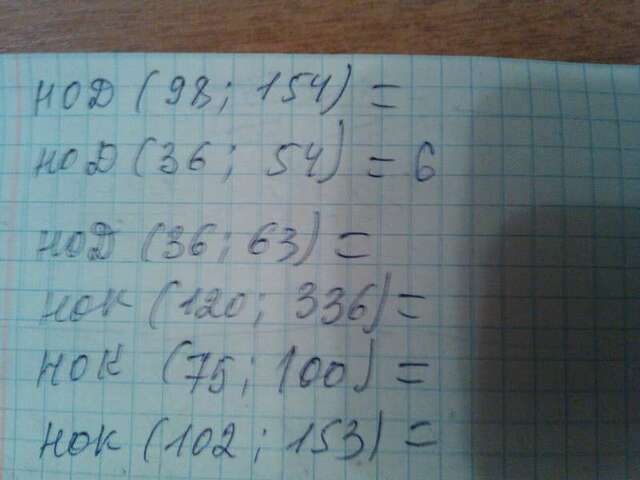 НОД (98; 154) =
НОД (36; 54) = 6
НОД (36; 63) =
НОК (120; 336) =
НОК (75; 100) =
НОК (102; 153) =